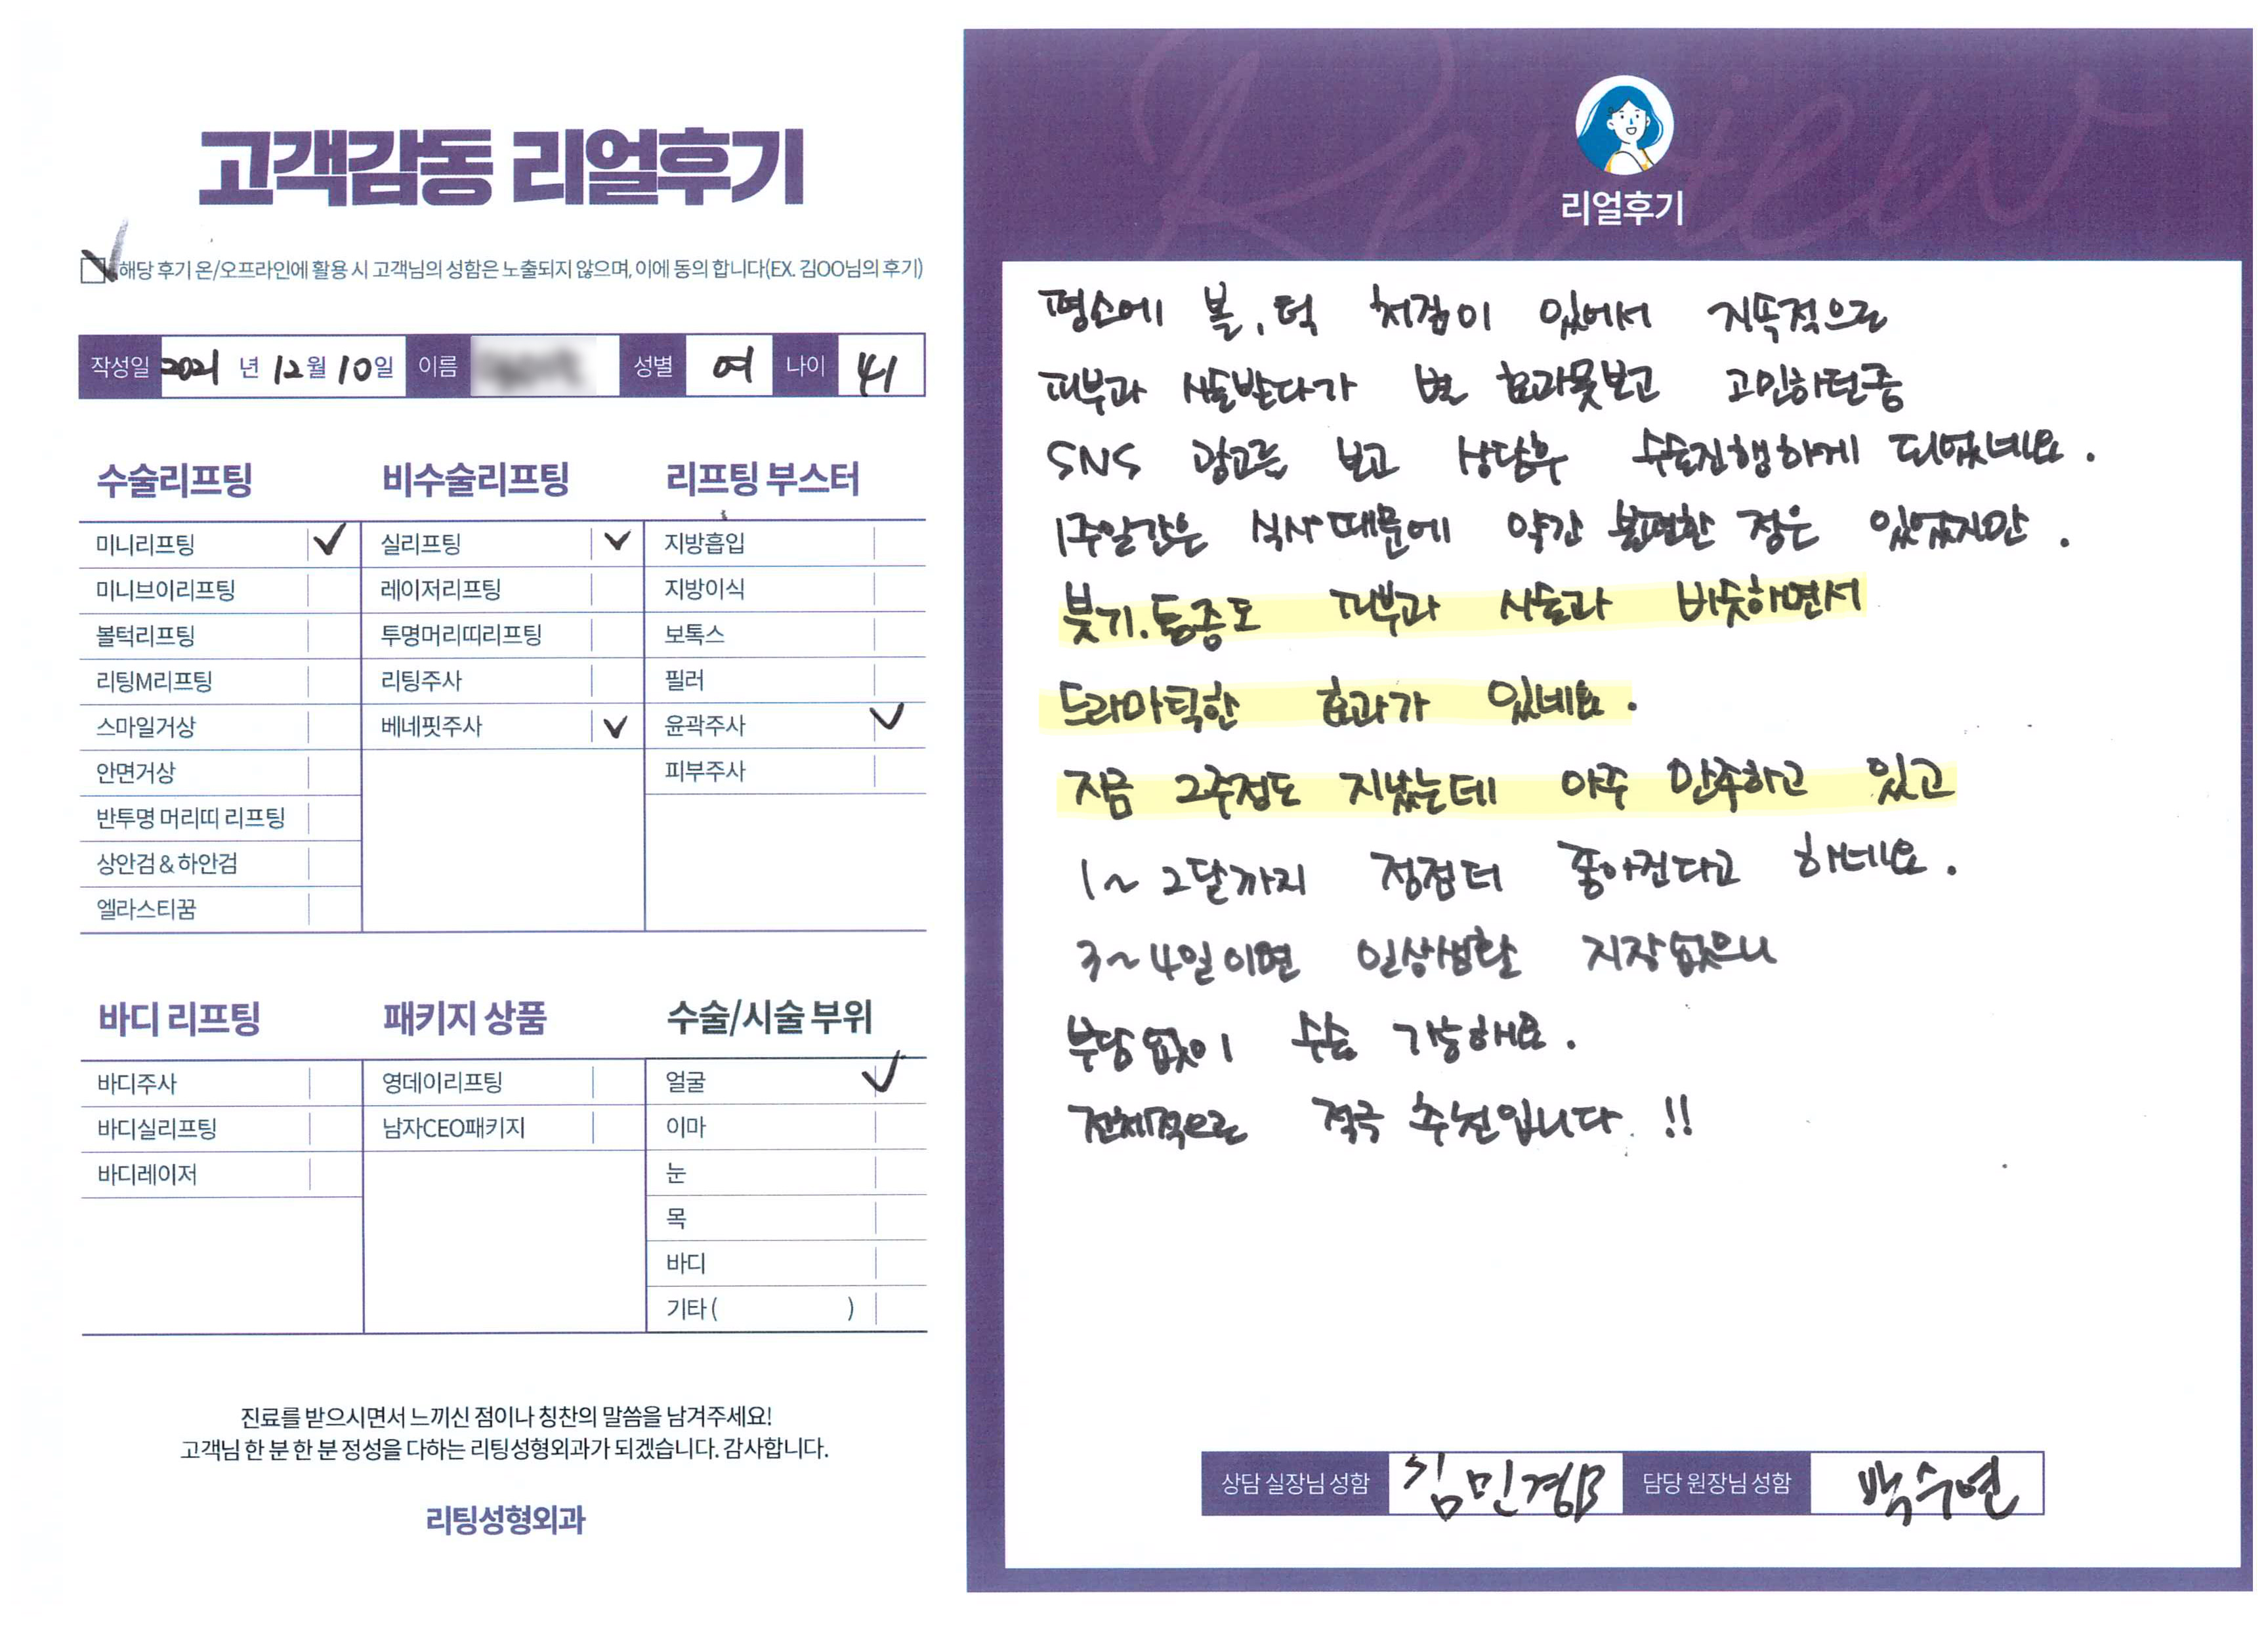 고객감동 리얼후기
해당 후기 온/오프라인에 활용 시 고객님의 성함은 노출되지 않으며, 이에 동의 합니다(EX. 김OO님의 후기)
작성일 2021 년 12월 10일 이름 성별 여 나이 41
수술리프팅
미니리프팅
미니브이리프팅
볼턱리프팅
리팅M리프팅
스마일거상
안면거상
반투명 머리띠 리프팅
상안검 & 하안검
엘라스티꿈
비수술리프팅
실리프팅
레이저리프팅
투명머리띠리프팅
리팅주사
베네핏주사
리프팅 부스터
지방흡입
지방이식
보톡스
필러
윤곽주사
피부주사
바디 리프팅
바디주사
바디실리프팅
바디레이저
패키지 상품
영데이리프팅
남자CEO패키지
수술/시술 부위
얼굴
이마
눈
목
바디
기타 ( )
진료를 받으시면서 느끼신 점이나 칭찬의 말씀을 남겨주세요!
고객님 한 분 한 분 정성을 다하는 리팅성형외과가 되겠습니다. 감사합니다.
리팅성형외과
Review
리얼후기
평소에 볼, 턱 처짐이 있어서 지속적으로
피부과 시술받다가 별 효과못보고 고민하던중
SNS 광고를 보고 상담후 수술진행하게 되었네요.
1주일간은 식사때문에 약간 불편한 점은 있었지만.
붓기.통증도 피부과 시술과 비슷하면서
드라마틱한 효과가 있네요.
지금 2주정도 지났는데 아주 만족하고 있고
1~2달까지 점점더 좋아진다고 하네요.
3~4일이면 일상생활 지장없으니
부담없이 수술 가능해요.
전체적으로 적극 추천입니다. !!
상담 실장님 성함 김민경B 담당 원장님 성함 백수연